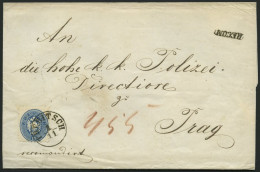 An
RECOM:
die hohe k. k. Polizei-
Direction
zu
455
Prag
recommandirt